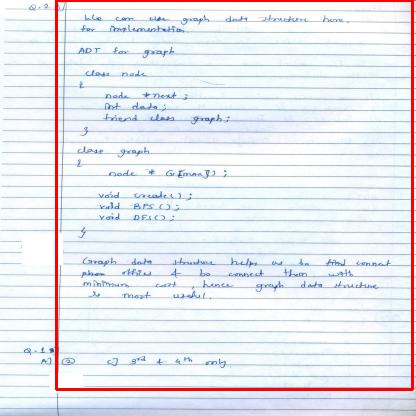 Q.2
We can use graph data structure here.
for implementation.
ADT for graph
class node
{
node *next;
int data;
friend class graph;
}
class graph
{
node * G[max];
void create();
void BFS();
void DFS();
}
Graph data structure helps us to find connect
phone offices & to connect them with
minimum cost, hence graph data structure
is most useful.
Q.1
A] ② c] 3rd & 4th only